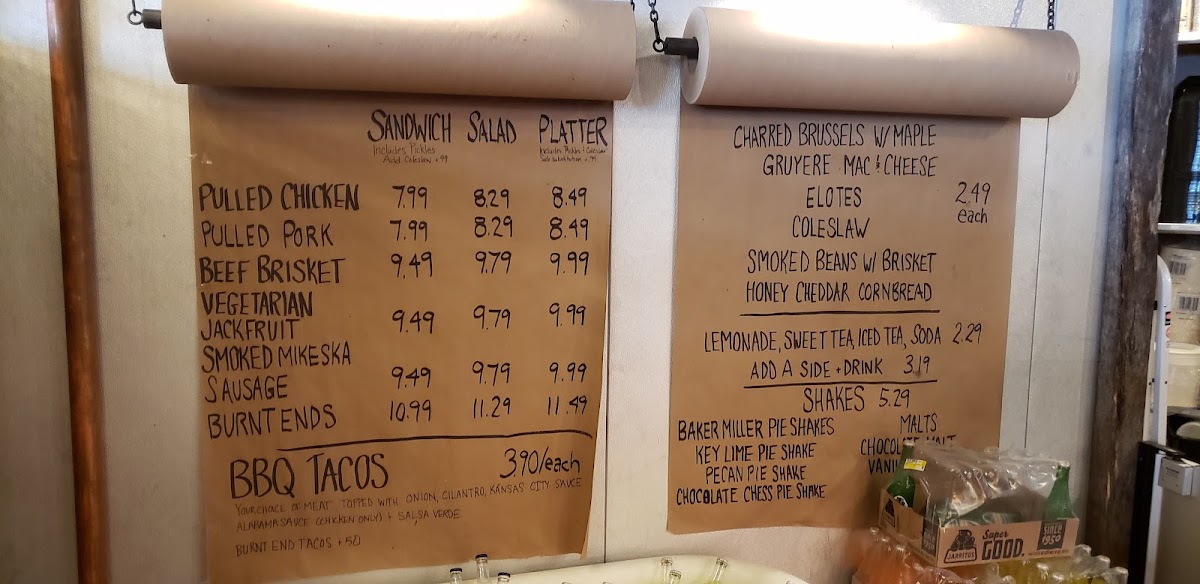 SANDWICH SALAD PLATTER
Includes Pickles
Add Coleslaw + .99
Includes Pickles + Coleslaw
PULLED CHICKEN 7.99 8.29 8.49
PULLED PORK 7.99 8.29 8.49
BEEF BRISKET 9.49 9.79 9.99
VEGETARIAN
JACKFRUIT 9.49 9.79 9.99
SMOKED MIKESKA
SAUSAGE 9.49 9.79 9.99
BURNT ENDS 10.99 11.29 11.49
BBQ TACOS 3.90/each
YOUR CHOICE OF MEAT TOPPED WITH ONION, CILANTRO, KANSAS CITY SAUCE
ALABAMA SAUCE (CHICKEN ONLY) + SALSA VERDE
BURNT END TACOS + 50
CHARRED BRUSSELS W/ MAPLE
GRUYERE MAC & CHEESE
ELOTES 2.49
each
COLESLAW
SMOKED BEANS W/ BRISKET
HONEY CHEDDAR CORNBREAD
LEMONADE, SWEET TEA, ICED TEA, SODA 2.29
ADD A SIDE + DRINK 3.19
SHAKES 5.29
BAKER MILLER PIE SHAKES
KEY LIME PIE SHAKE
PECAN PIE SHAKE
CHOCOLATE CHESS PIE SHAKE
MALTS
JARRITOS
Super
GOOD.
SINCE
1950